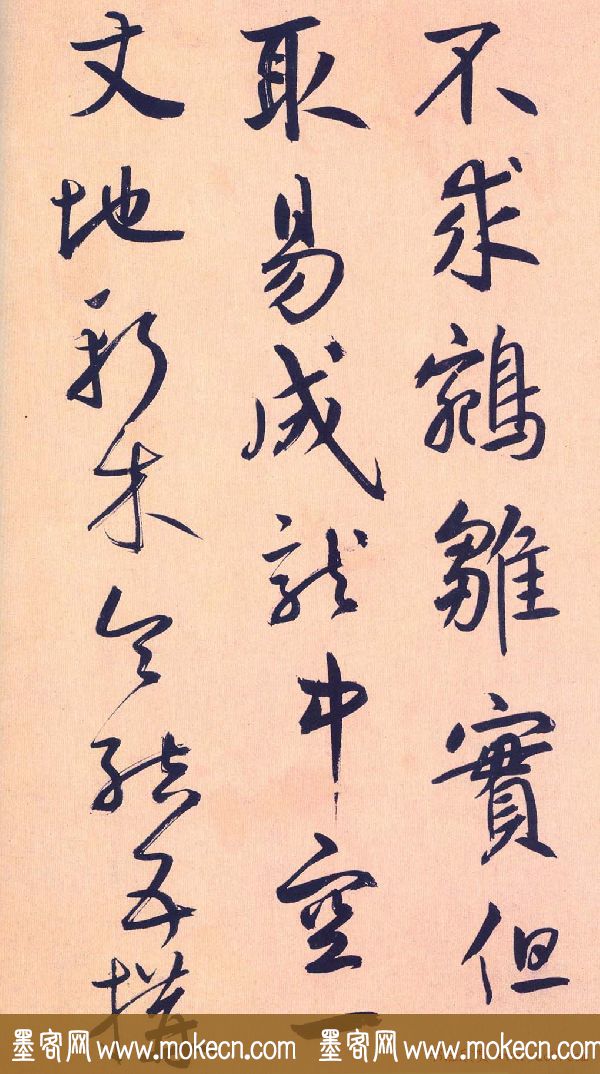 不求鵷雛實但
取易成就中空一
丈地斬木令結構
墨客网 www.mokecn.com 墨客网 www.mokecn.com